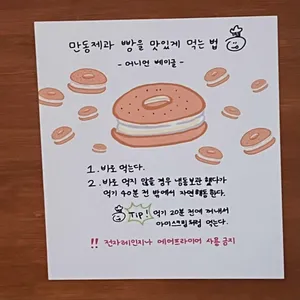 만동제과 빵을 맛있게 먹는 법
- 어니언 베이글 -
1. 바로 먹는다.
2. 바로 먹지 않을 경우 냉동보관 했다가
먹기 40분 전 밖에서 자연해동 한다.
TIP! 먹기 20분 전에 꺼내서
아이스크림처럼 먹는다.
!! 전자레인지나 에어프라이어 사용 금지